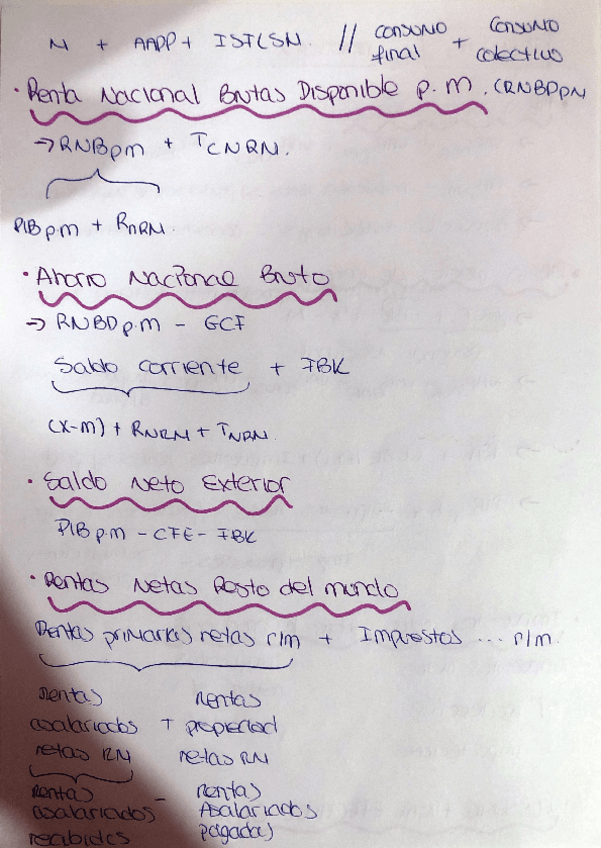 N + AAPP + ISFLSN. // consumo final + consumo colectivo
· Renta Nacional Brutas Disponible p.m. (RNBDpm
→ RNBpm + TCNRN.
PIBp.m + RNRN.
· Ahorro Nacional Bruto
→ RNBDp.m - GCF
Saldo corriente + FBK
(X-M) + RNRN + TNRN.
· Saldo Neto Exterior
PIBp.m - CFE - FBK
· Rentas Netas Resto del mundo
Rentas primarias netas r/m + Impuestos ... r/m.
rentas asalariados netas RN + Rentas propiedad netas RN
rentas asalariados recibidas - rentas Asalariados pagadas